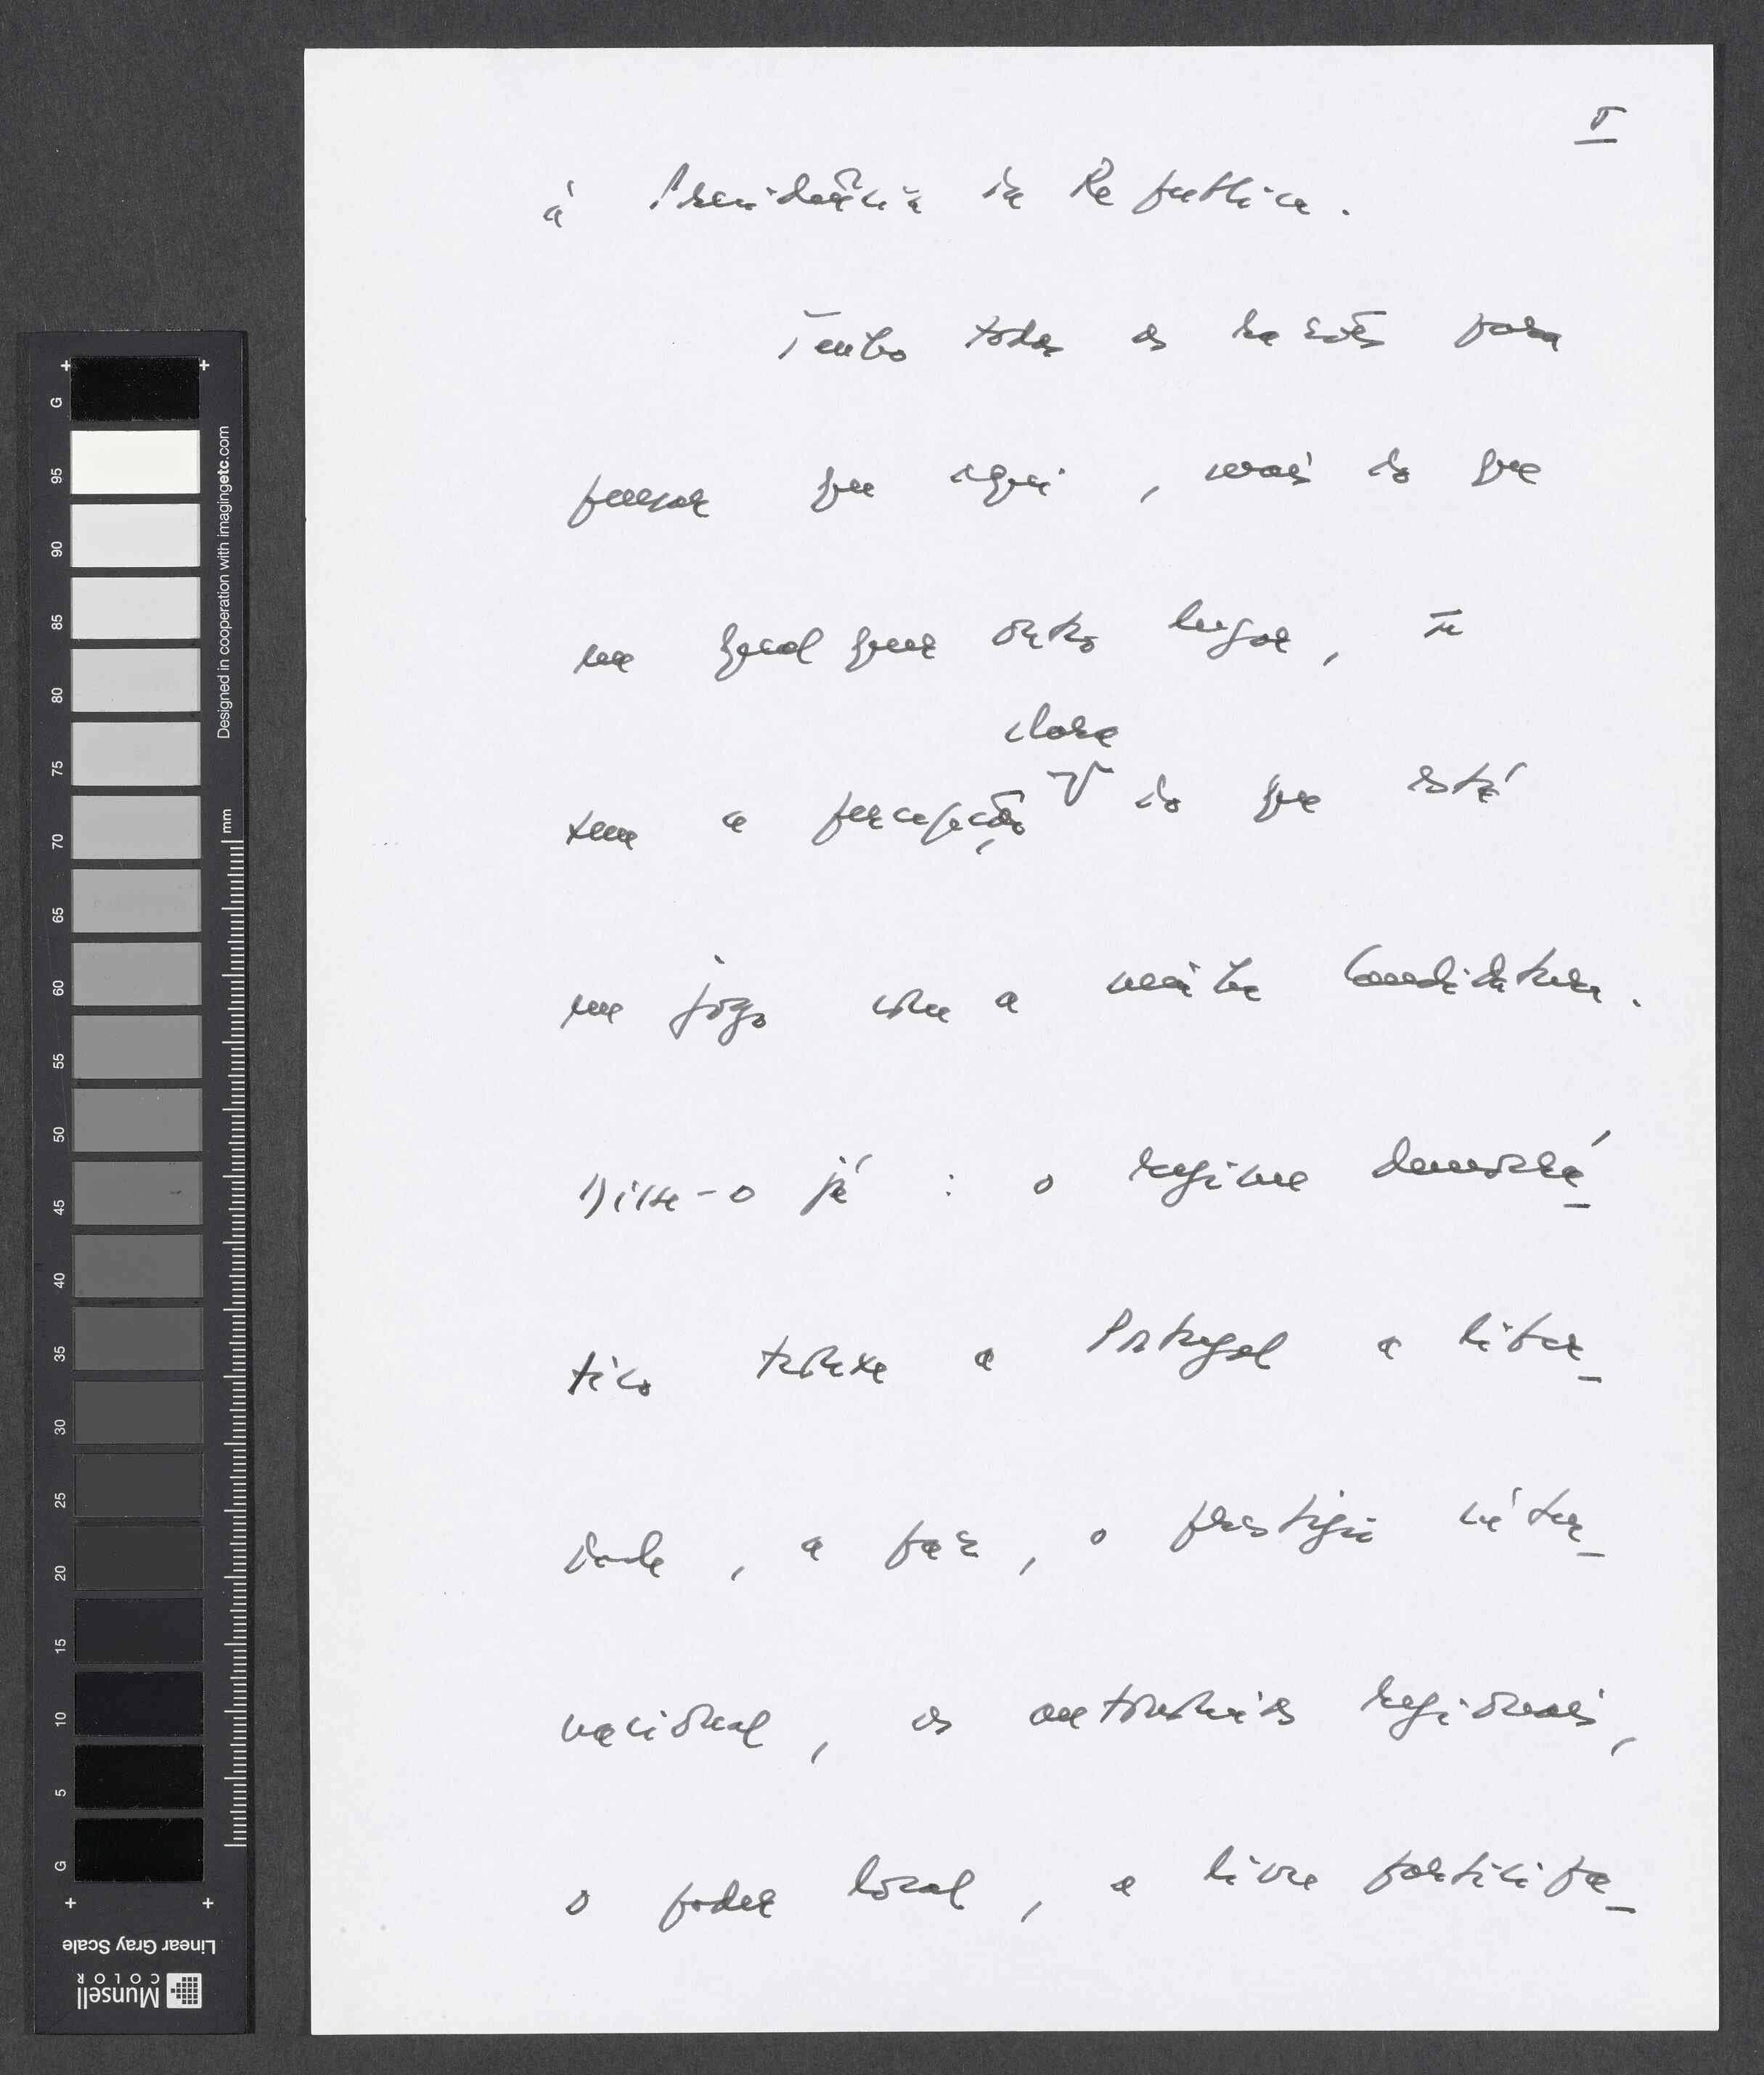 V
à Presidência da Republica.
Tenho todas as razões para
pensar que aqui, mais do que
em qualquer outro lugar, se
tem a percepção clara do que está
em jogo com a minha Candidatura.
Disse-o já : o regime democrá-
tico trouxe a Portugal a liber-
dade, a paz, o prestígio inter-
nacional, as autonomias regionais,
o poder local, a livre participa-
G
95
90
85
80
75
70
65
60
55
50
45
40
35
30
25
20
15
10
5
G
Designed in cooperation with imagingetc.com
mm
Linear Gray Scale
Munsell
COLOR